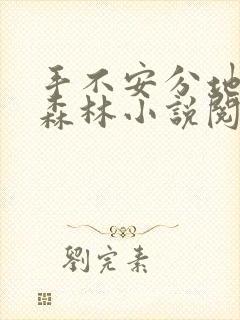 手不安分地
森林小說閱
劉完素